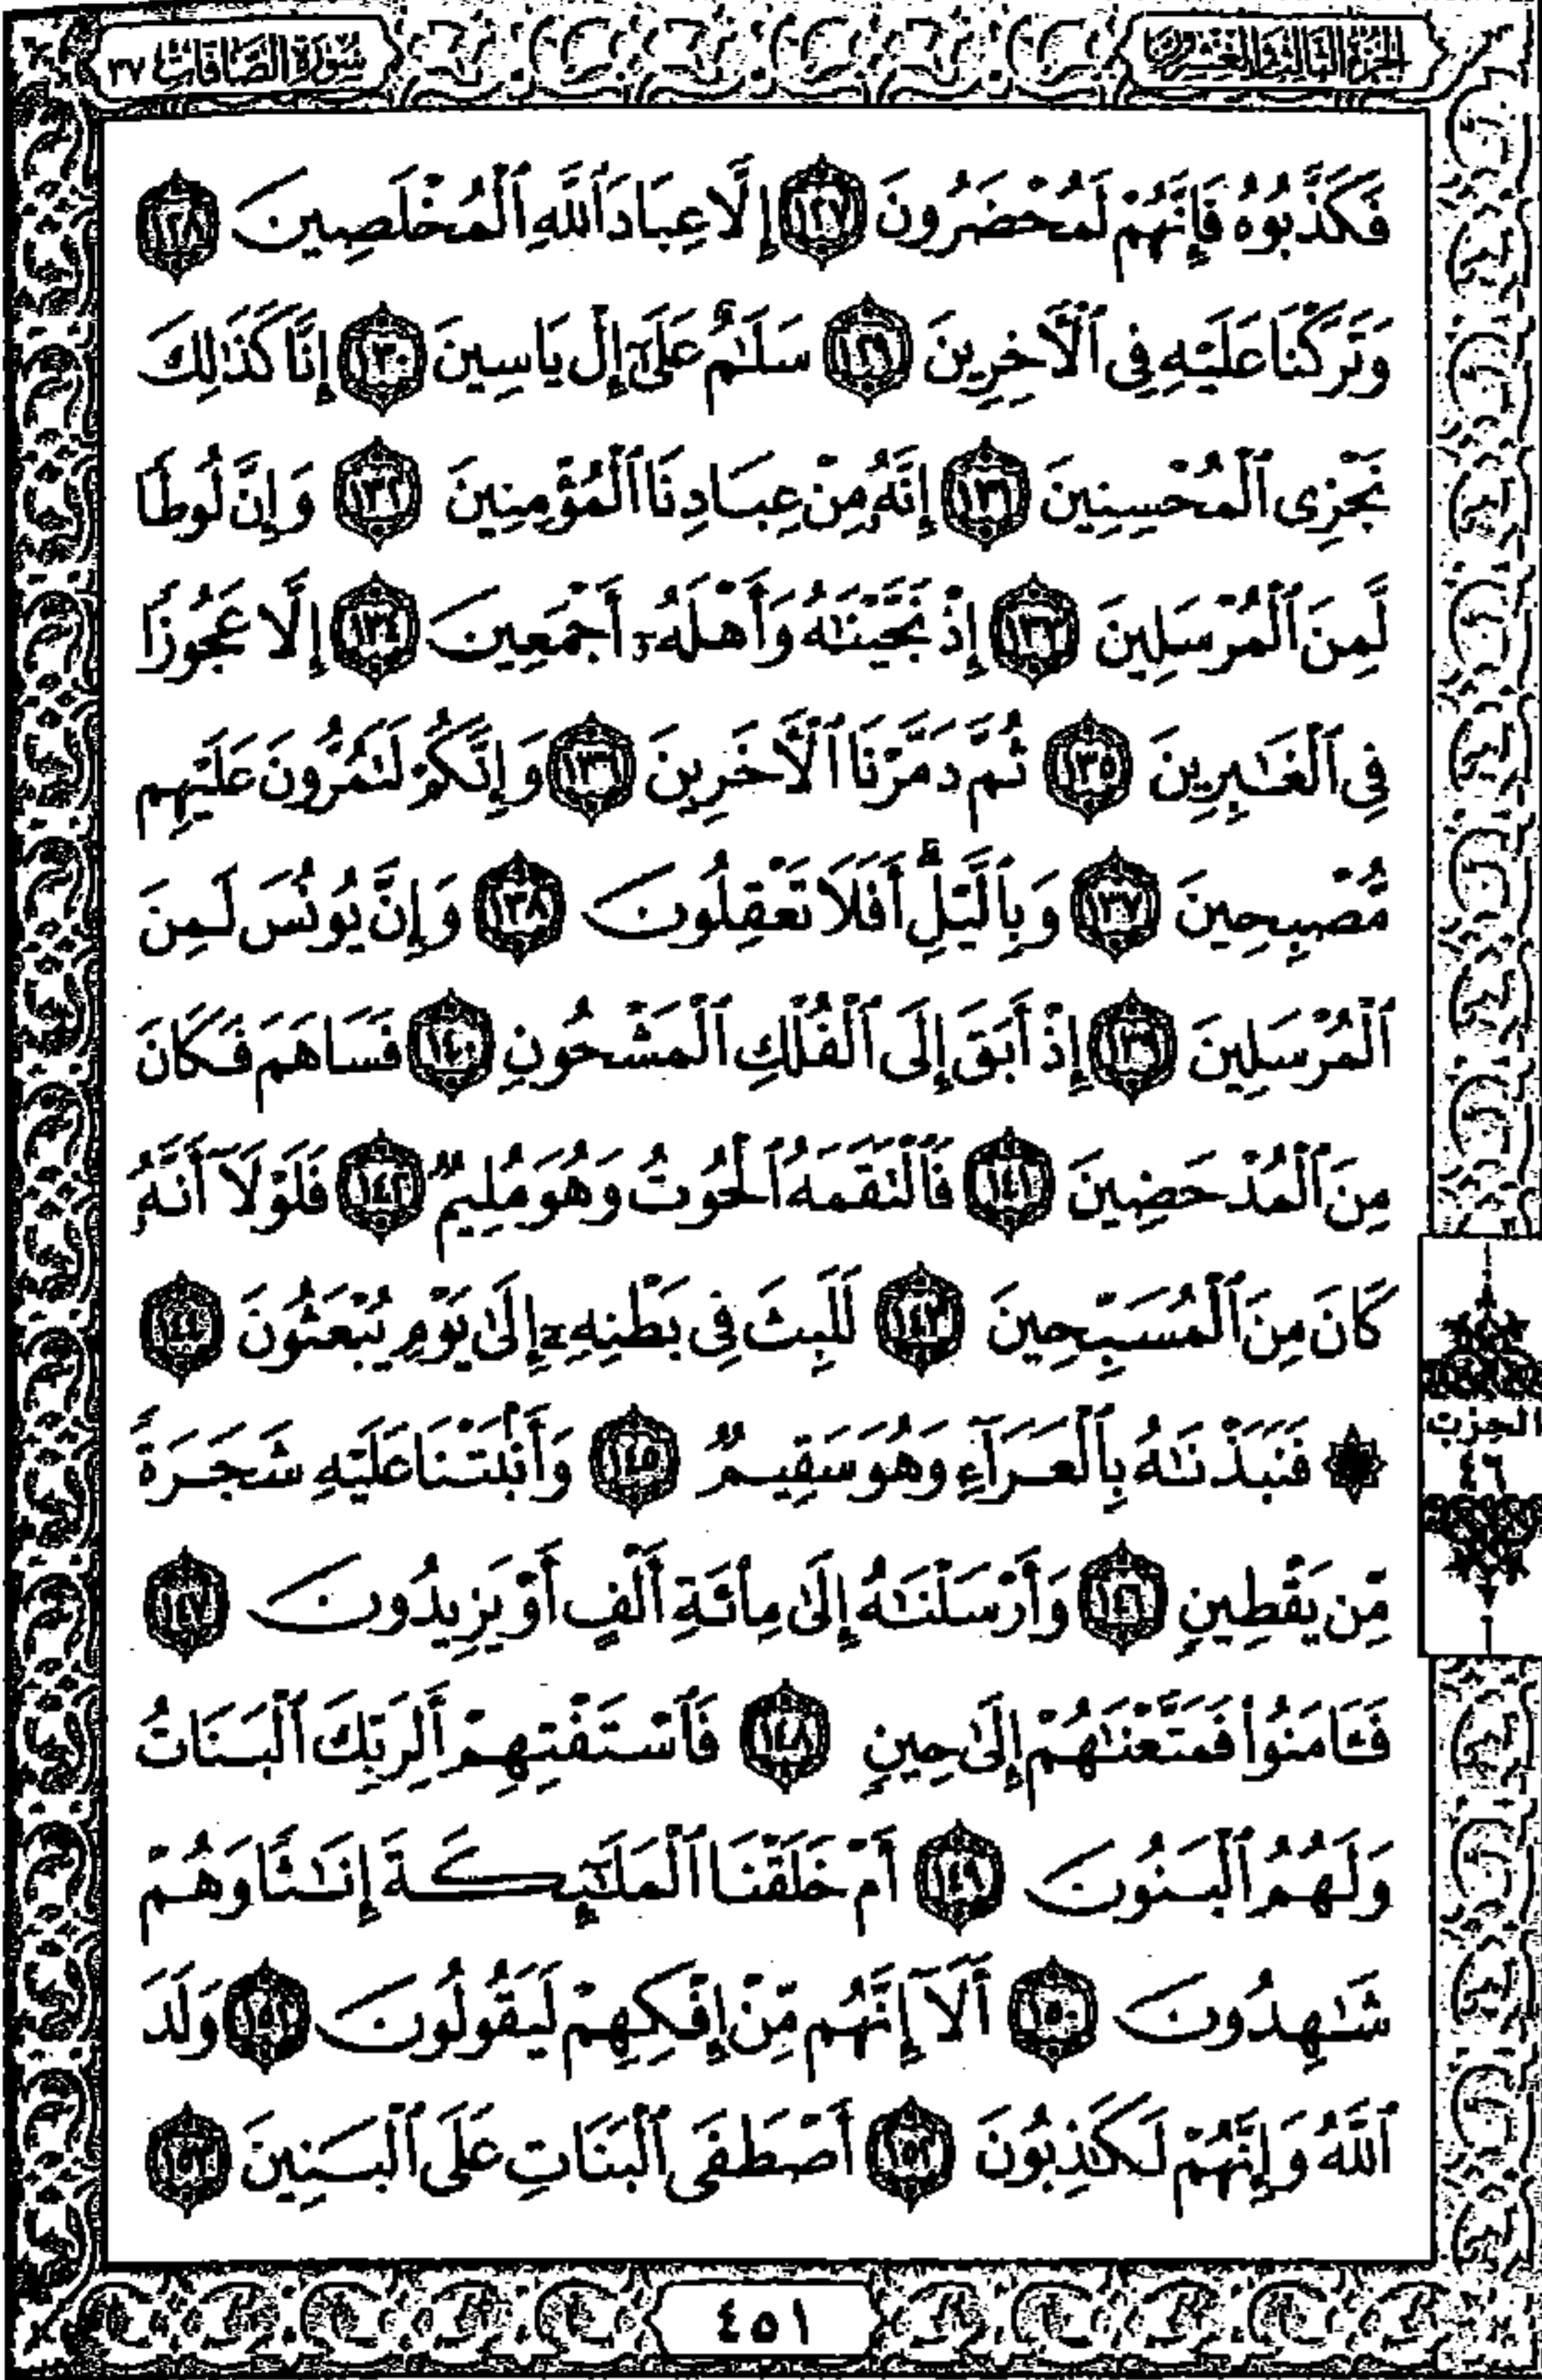 الجزء الثالث والعشرون
سورة الصافات ٣٧
فَكَذَّبُوهُ فَإِنَّهُمْ لَمُحْضَرُونَ ١٢٧ إِلَّا عِبَادَ ٱللَّهِ ٱلْمُخْلَصِينَ ١٢٨
وَتَرَكْنَا عَلَيْهِ فِى ٱلْأَخِرِينَ ١٢٩ سَلَٰمٌ عَلَىٰٓ إِلْ يَاسِينَ ١٣٠ إِنَّا كَذَٰلِكَ
نَجْزِى ٱلْمُحْسِنِينَ ١٣١ إِنَّهُۥ مِنْ عِبَادِنَا ٱلْمُؤْمِنِينَ ١٣٢ وَإِنَّ لُوطًا
لَّمِنَ ٱلْمُرْسَلِينَ ١٣٣ إِذْ نَجَّيْنَٰهُ وَأَهْلَهُۥٓ أَجْمَعِينَ ١٣٤ إِلَّا عَجُوزًا
فِى ٱلْغَٰبِرِينَ ١٣٥ ثُمَّ دَمَّرْنَا ٱلْأَخَرِينَ ١٣٦ وَإِنَّكُمْ لَتَمُرُّونَ عَلَيْهِم
مُّصْبِحِينَ ١٣٧ وَبِٱلَّيْلِ ۗ أَفَلَا تَعْقِلُونَ ١٣٨ وَإِنَّ يُونُسَ لَمِنَ
ٱلْمُرْسَلِينَ ١٣٩ إِذْ أَبَقَ إِلَى ٱلْفُلْكِ ٱلْمَشْحُونِ ١٤٠ فَسَاهَمَ فَكَانَ
مِنَ ٱلْمُدْحَضِينَ ١٤١ فَٱلْتَقَمَهُ ٱلْحُوتُ وَهُوَ مُلِيمٌ ١٤٢ فَلَوْلَآ أَنَّهُۥ
كَانَ مِنَ ٱلْمُسَبِّحِينَ ١٤٣ لَلَبِثَ فِى بَطْنِهِۦٓ إِلَىٰ يَوْمِ يُبْعَثُونَ ١٤٤
۞ فَنَبَذْنَٰهُ بِٱلْعَرَآءِ وَهُوَ سَقِيمٌ ١٤٥ وَأَنۢبَتْنَا عَلَيْهِ شَجَرَةً
مِّن يَقْطِينٍ ١٤٦ وَأَرْسَلْنَٰهُ إِلَىٰ مِا۟ئَةِ أَلْفٍ أَوْ يَزِيدُونَ ١٤٧
فَـَٔامَنُوا۟ فَمَتَّعْنَٰهُمْ إِلَىٰ حِينٍ ١٤٨ فَٱسْتَفْتِهِمْ أَلِرَبِّكَ ٱلْبَنَاتُ
وَلَهُمُ ٱلْبَنُونَ ١٤٩ أَمْ خَلَقْنَا ٱلْمَلَٰٓئِكَةَ إِنَٰثًا وَهُمْ
شَٰهِدُونَ ١٥٠ أَلَآ إِنَّهُم مِّنْ إِفْكِهِمْ لَيَقُولُونَ ١٥١ وَلَدَ
ٱللَّهُ وَإِنَّهُمْ لَكَٰذِبُونَ ١٥٢ أَصْطَفَى ٱلْبَنَاتِ عَلَى ٱلْبَنِينَ ١٥٣
الحزب
٤٦
٤٥١